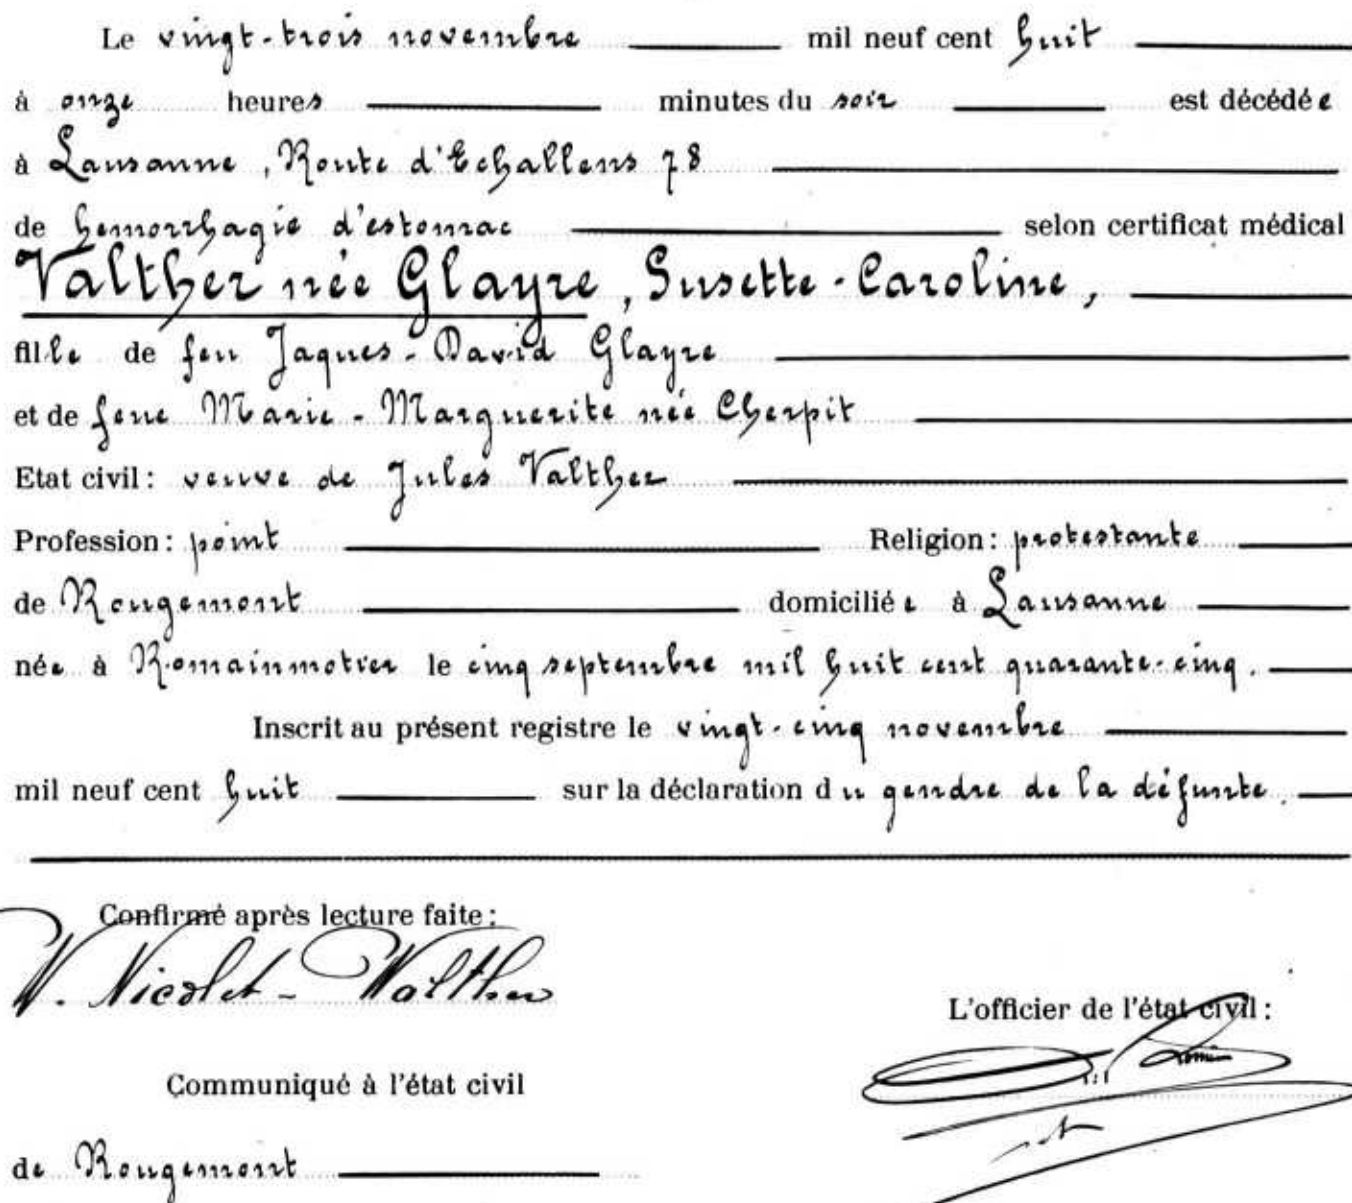 Le vingt-trois novembre mil neuf cent huit
à onze heures minutes du soir est décédée
à Lausanne, Route d'Echallens 78
de hemorrhagie d'estomac selon certificat médical
Valther née Glayre, Susette-Caroline,
fille de feu Jaques-David Glayre
et de feue Marie-Marguerite née Cherpit
Etat civil: veuve de Jules Valther
Profession: point Religion: protestante
de Rougemont domiciliée à Lausanne
née à Romainmotier le cinq septembre mil huit cent quarante-cinq.
Inscrit au présent registre le vingt-cinq novembre
mil neuf cent huit sur la déclaration du gendre de la défunte.
Confirmé après lecture faite:
Nicolet-Walther
L'officier de l'état civil:
Communiqué à l'état civil
de Rougemont